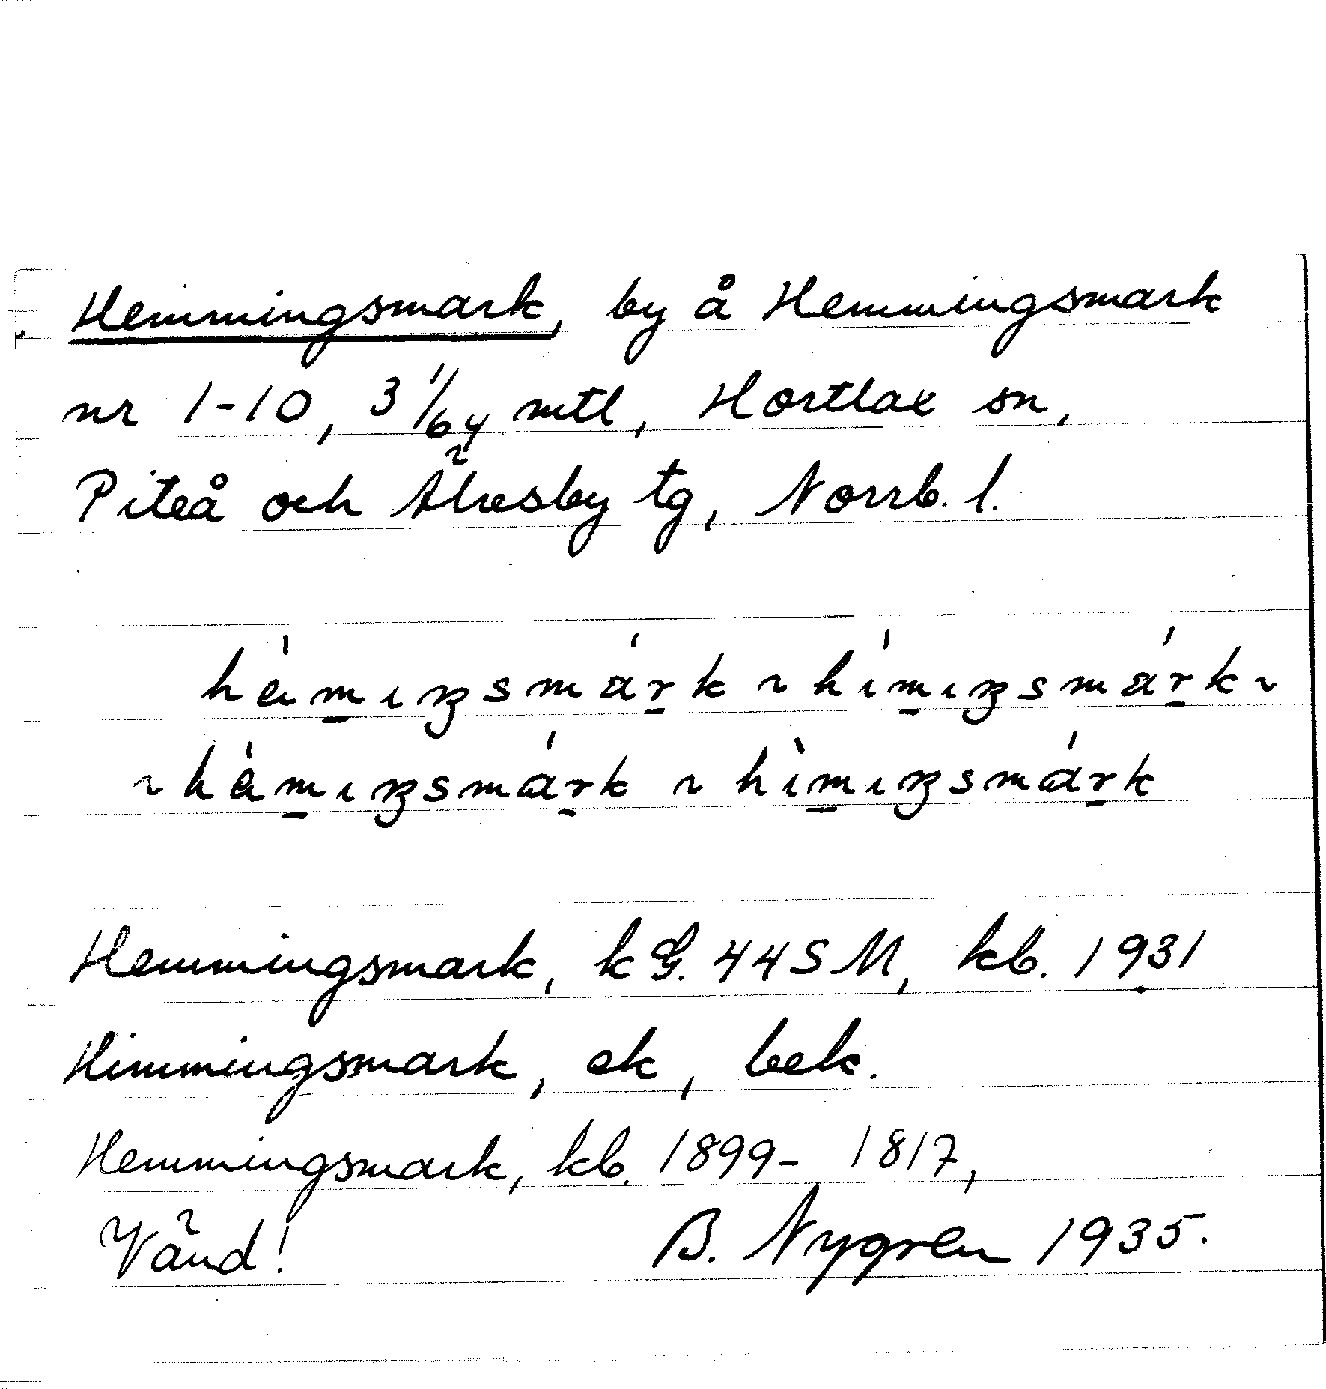 Hemmingsmark, by å Hemmingsmark
nr 1-10, 3 1/64 mtl, Hortlax sn,
Piteå och Älvsby tg, Norrb. l.
hèmıŋsmárk ~ hímıŋsmárk ~
~ hèmıŋsmárk ~ hìmıŋsmárk
Hemmingsmark, kG. 44 SM, kb. 1931
Himmingsmark, ek, bek.
Hemmingsmark, kb. 1899- 1817,
Vänd! B. Nygren 1935.